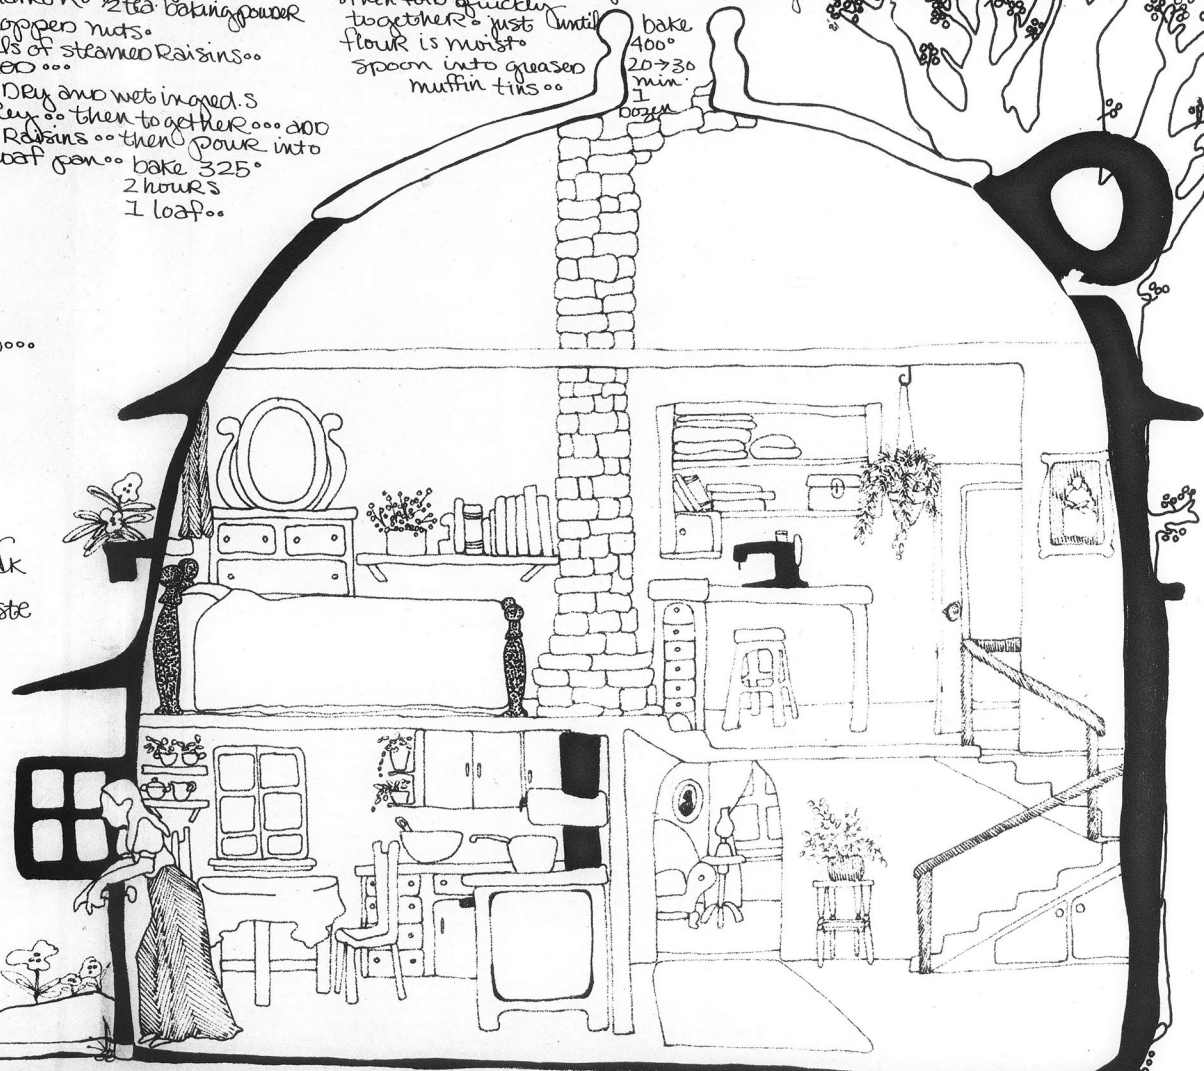 2 tea. baking powder
nuts.
of steamed Raisins..
...
DRy and wet ingred.s
.. then together... add
Raisins .. then pour into
loaf pan.. bake 325°
2 hours
1 loaf..
quickly
together. just until
flour is moist.
spoon into greased
muffin tins..
bake
400°
20→30
min.
1
dozen